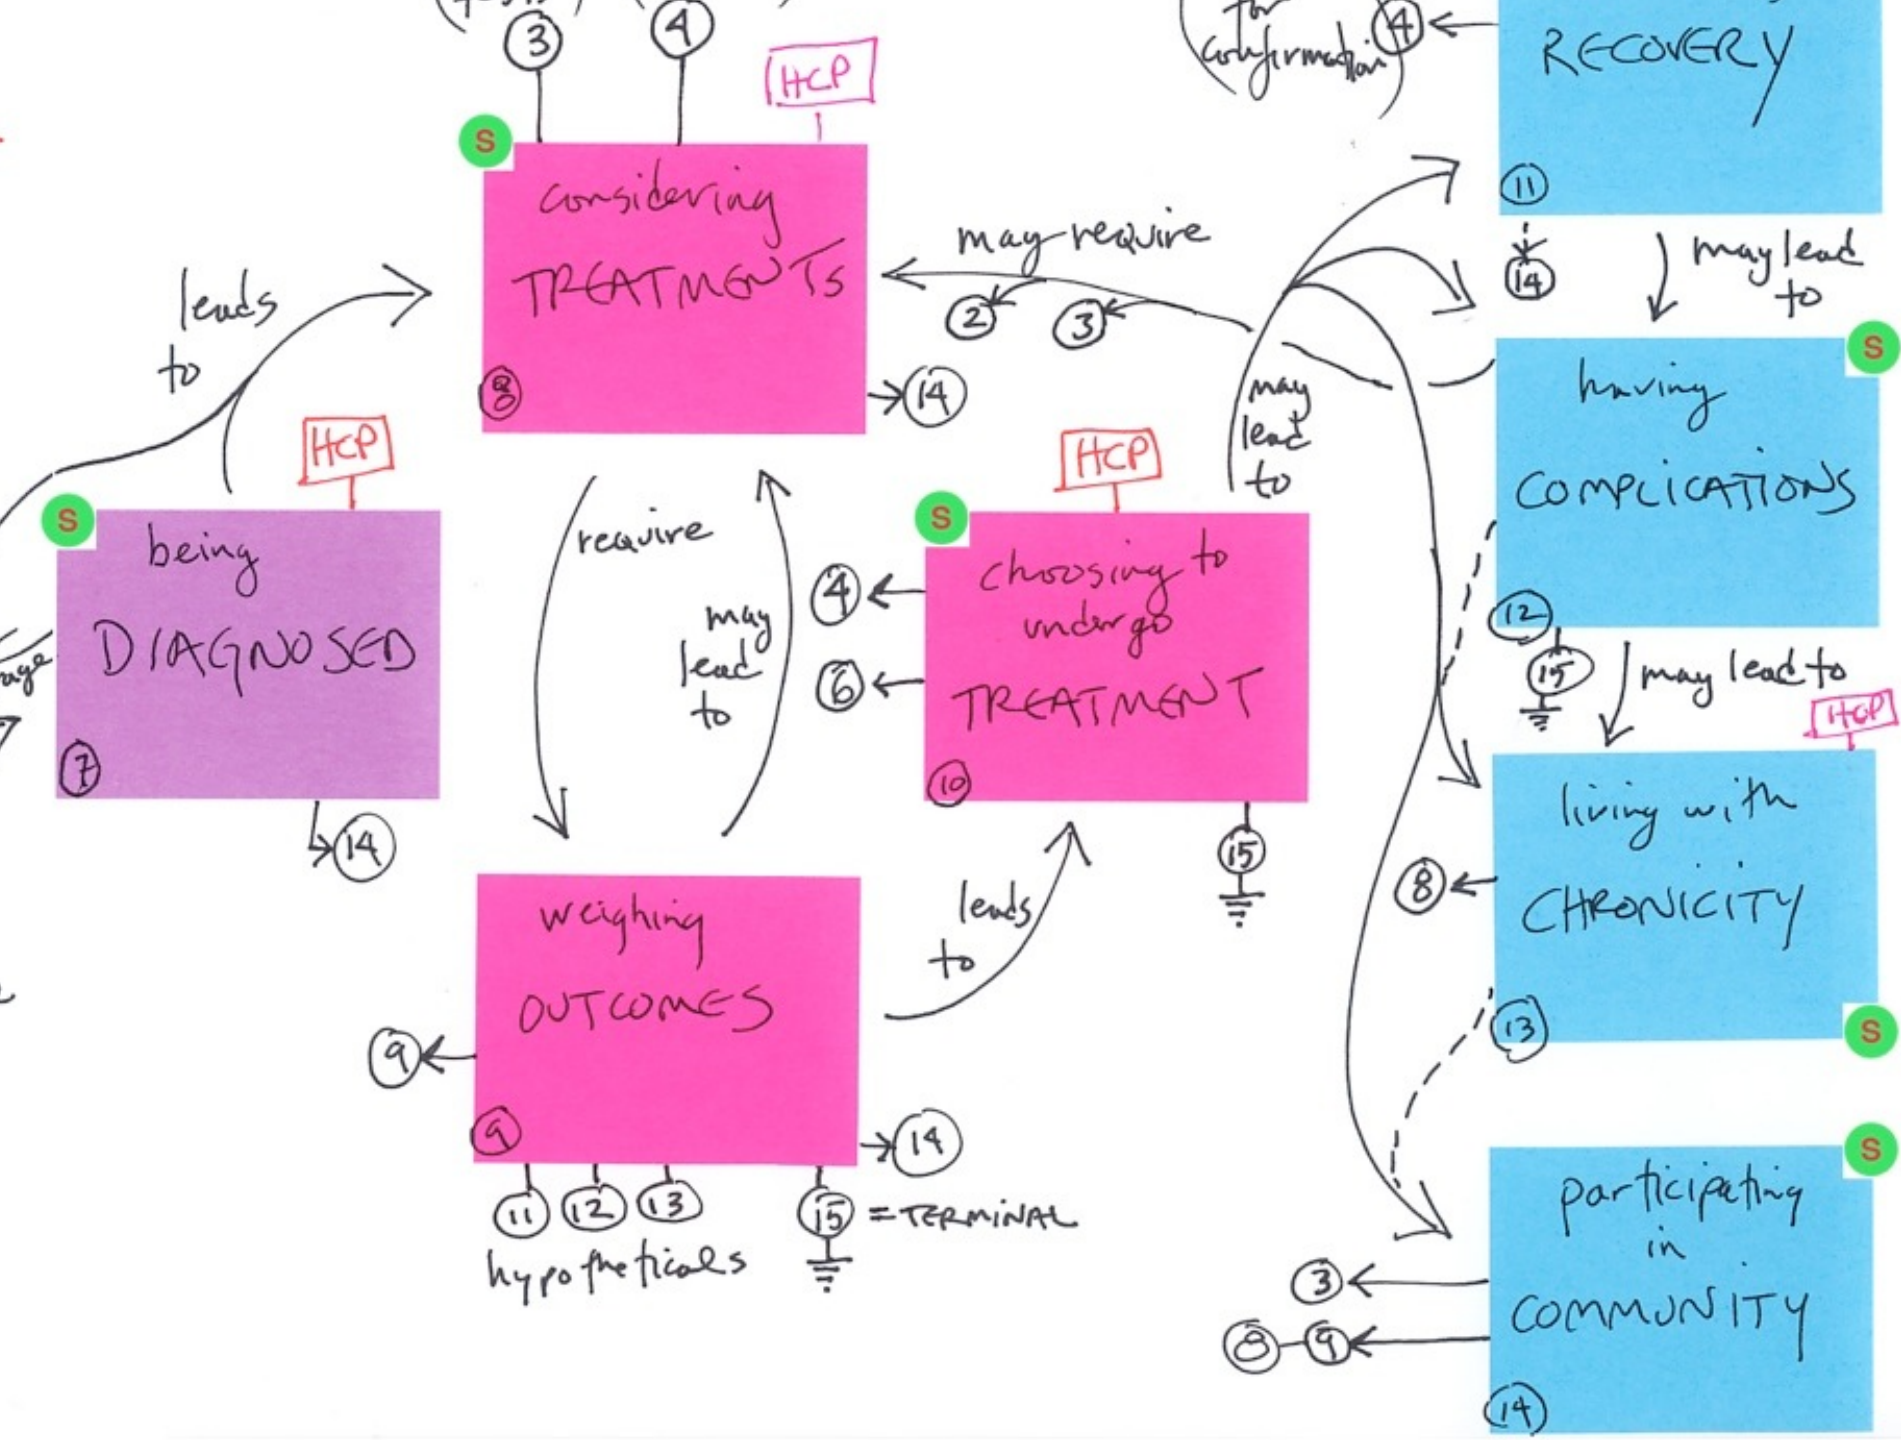 3
4
HCP
S
considering
TREATMENTS
8
14
may require
2
3
for
confirmation
4
RECOVERY
11
14
may lead
to
leads
to
HCP
S
being
DIAGNOSED
7
14
require
may
lead
to
HCP
S
choosing to
undergo
TREATMENT
10
4
6
15
may
lead
to
S
having
COMPLICATIONS
12
15
may lead to
HCP
living with
CHRONICITY
8
13
S
weighing
OUTCOMES
9
9
14
11
12
13
hypotheticals
15 = TERMINAL
leads
to
S
participating
in
COMMUNITY
3
8 - 9
14